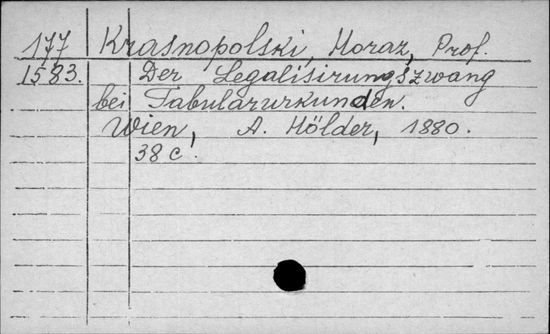 177 Krasnopolski, Horaz, Prof.
1583. Der Legalisirungszwang
bei Tabularurkunden.
Wien, A. Hölder, 1880.
38 c.